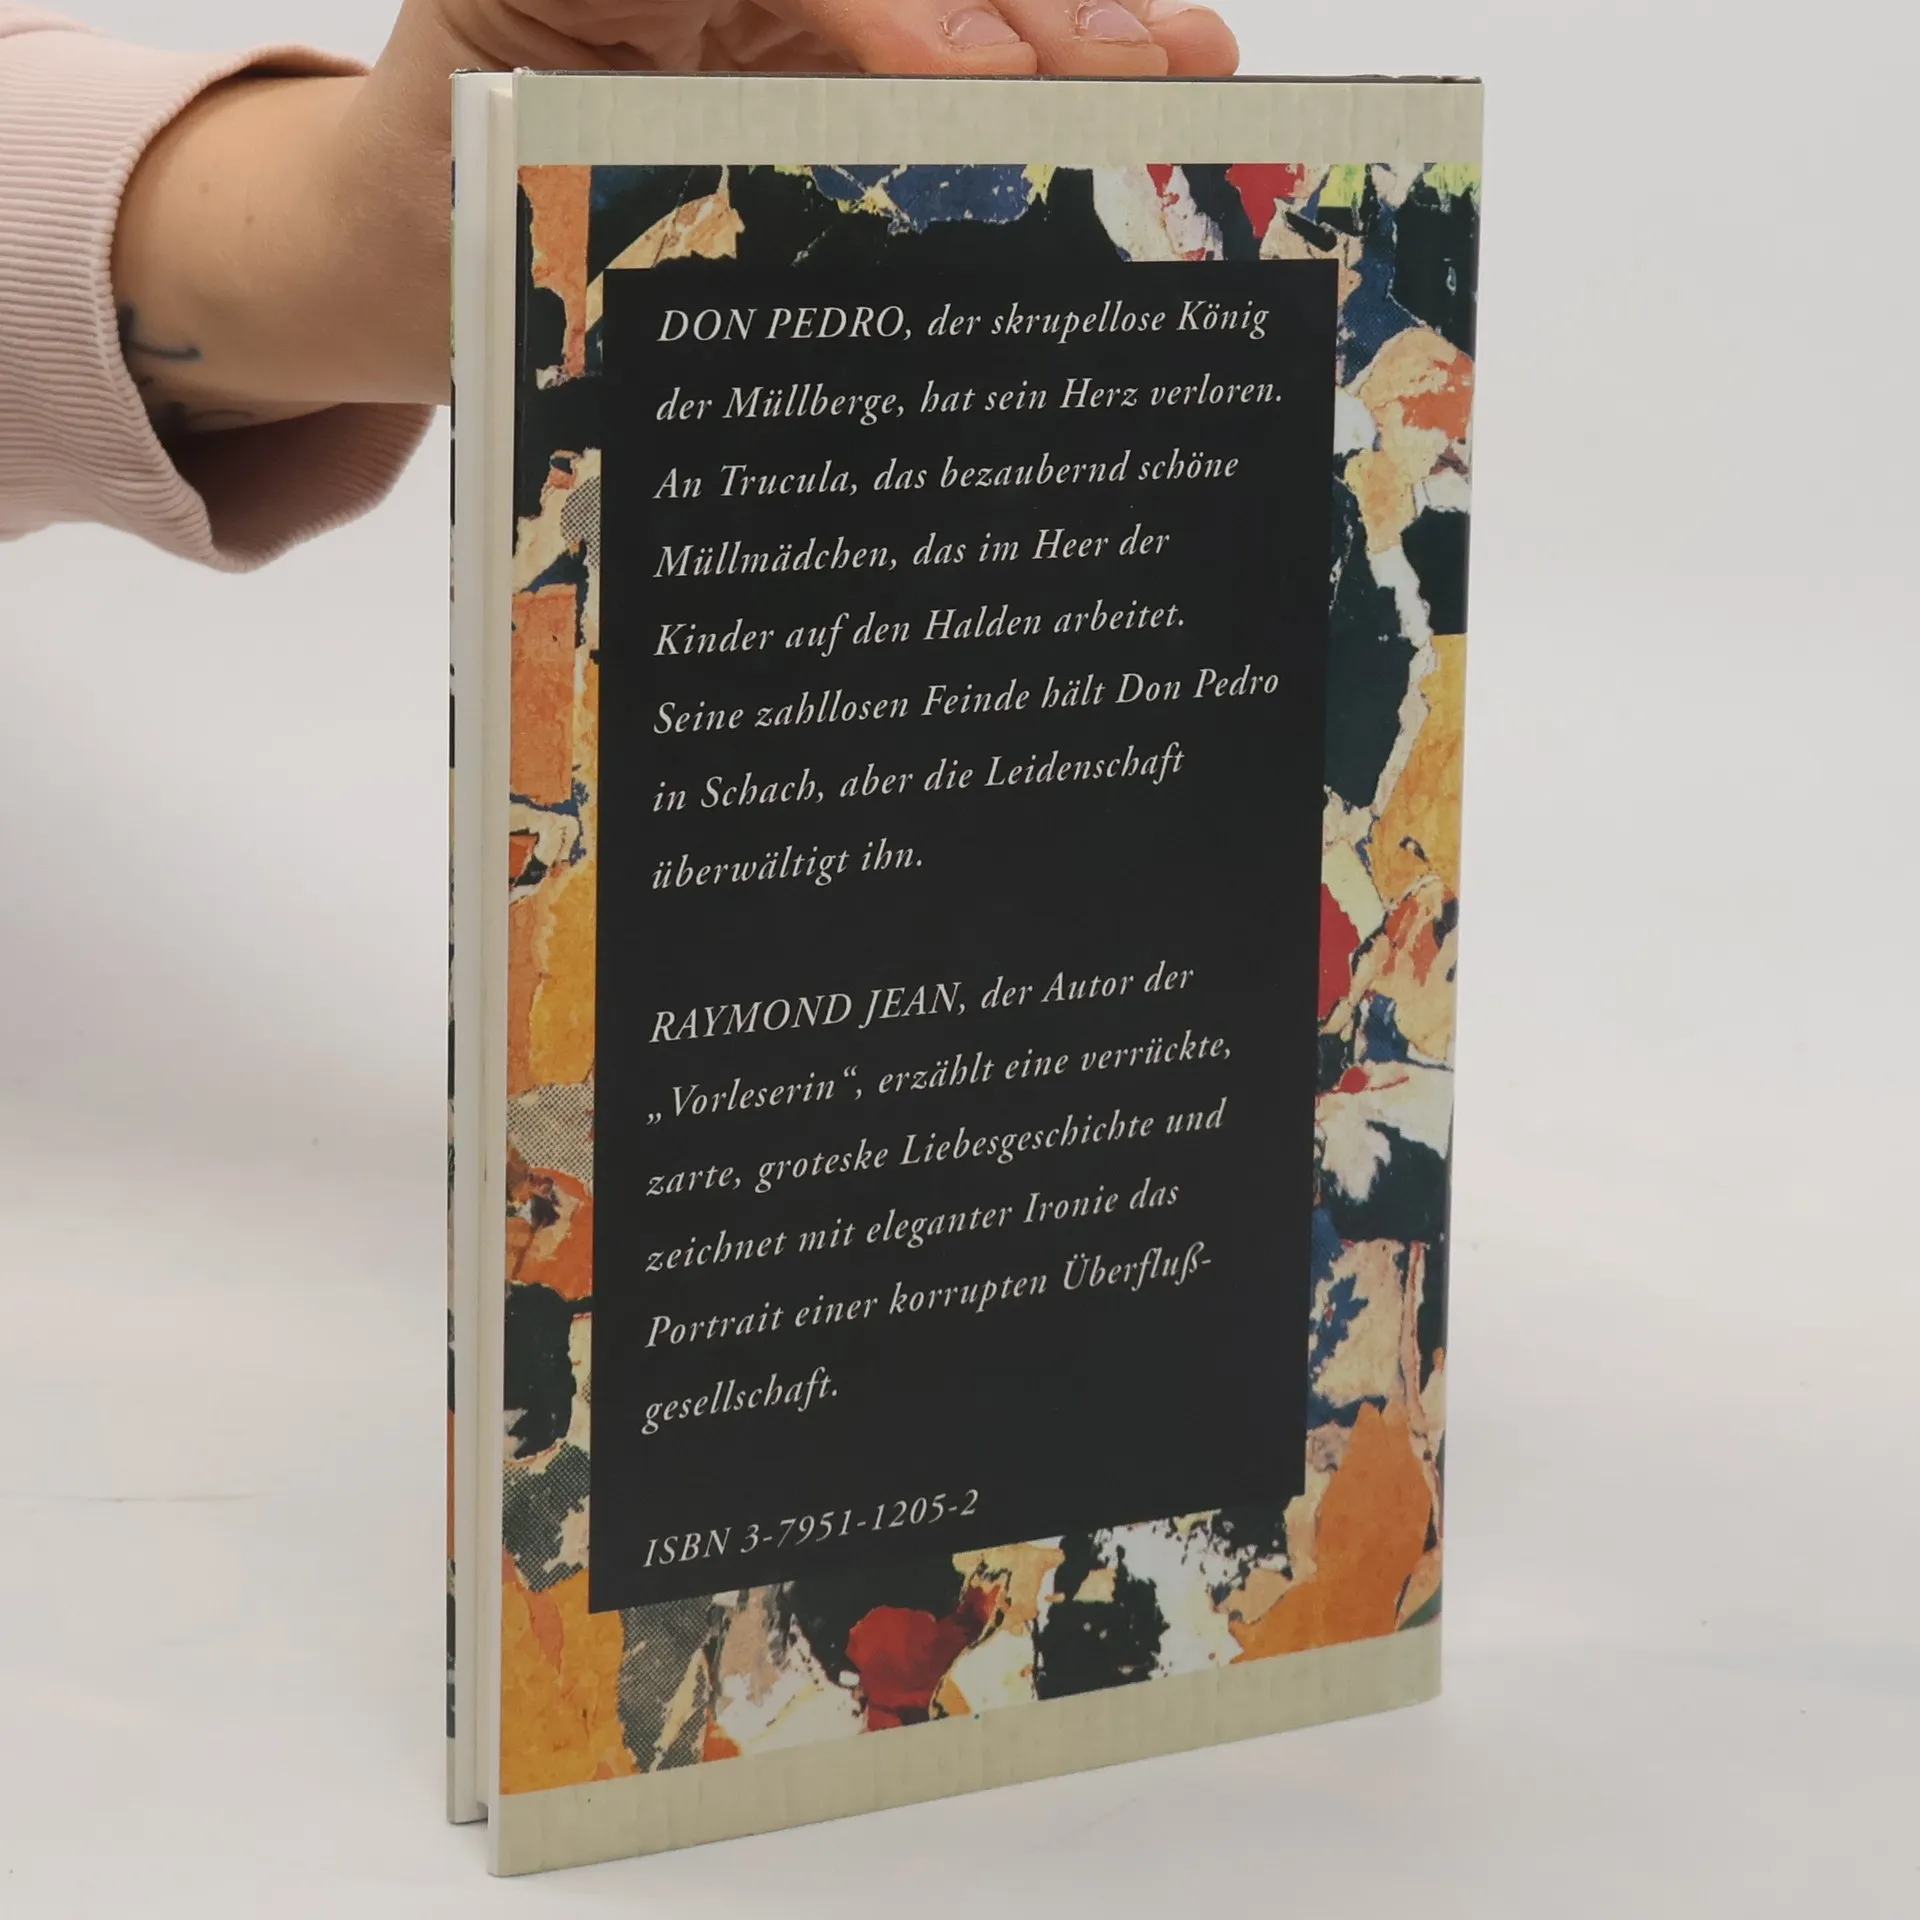 DON PEDRO, der skrupellose König
der Müllberge, hat sein Herz verloren.
An Trucula, das bezaubernd schöne
Müllmädchen, das im Heer der
Kinder auf den Halden arbeitet.
Seine zahllosen Feinde hält Don Pedro
in Schach, aber die Leidenschaft
überwältigt ihn.
RAYMOND JEAN, der Autor der
„Vorleserin“, erzählt eine verrückte,
zarte, groteske Liebesgeschichte und
zeichnet mit eleganter Ironie das
Portrait einer korrupten Überfluß-
gesellschaft.
ISBN 3-7951-1205-2